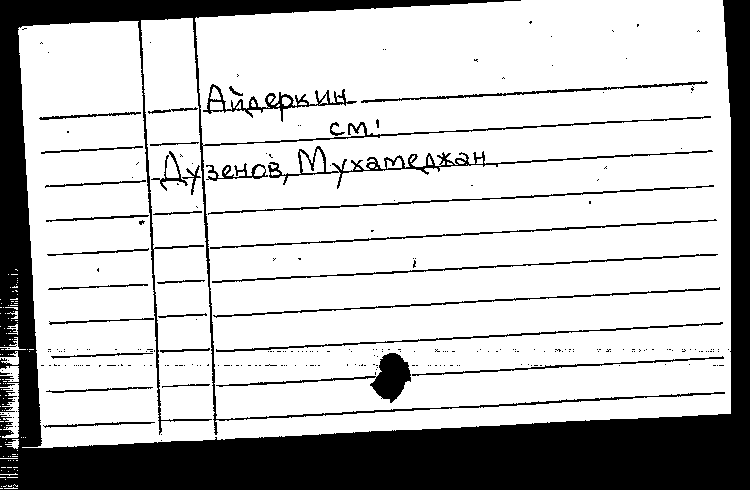 Айдеркин
см!
Дузенов, Мухамеджан